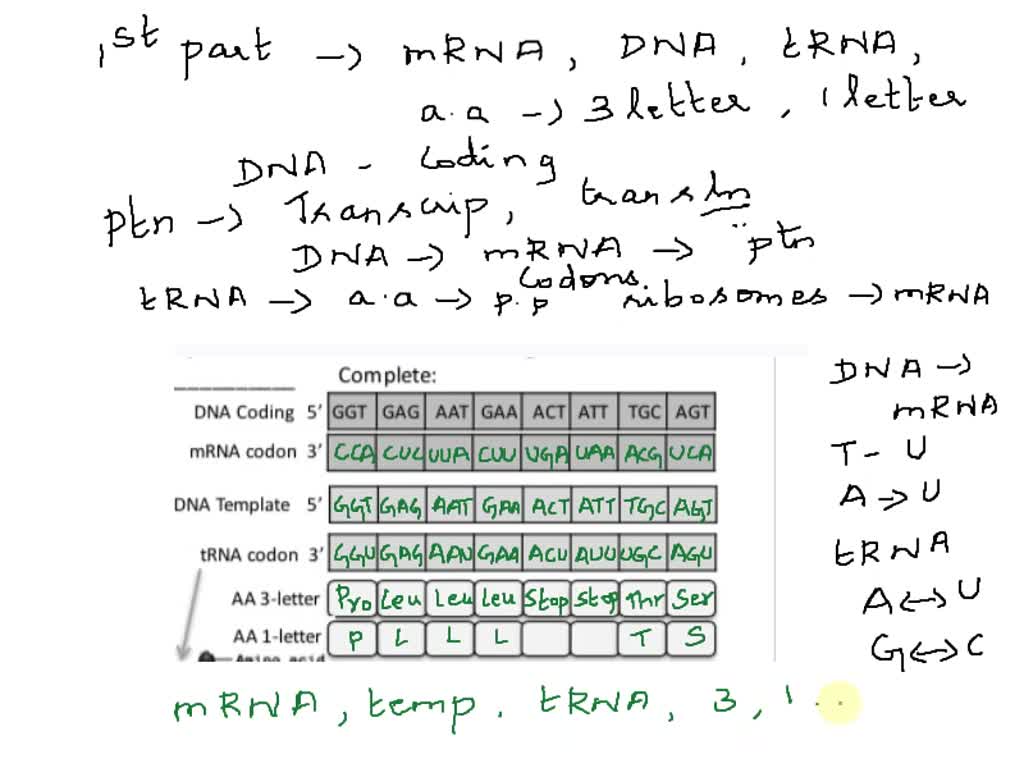 1st part -> mRNA, DNA, tRNA,
a.a -> 3 letter, 1 letter
DNA - Coding
ptn -> Transcrip, transln
DNA -> mRNA -> ptn
codons.
tRNA -> a.a -> p.p ribosomes -> mRNA
Complete:
DNA Coding 5' GGT GAG AAT GAA ACT ATT TGC AGT
mRNA codon 3' CCA CUC UUA CUU UGA UAA ACG UCA
DNA Template 5' GGT GAG AAT GAA ACT ATT TGC AGT
tRNA codon 3' GGU GAG AAU GAA ACU AUU UGC AGU
AA 3-letter Pro Leu Leu Leu Stop Stop Thr Ser
AA 1-letter P L L L T S
Amino acid
DNA ->
mRNA
T - U
A -> U
tRNA
A <-> U
G <-> C
mRNA, temp. tRNA, 3, 1 ..